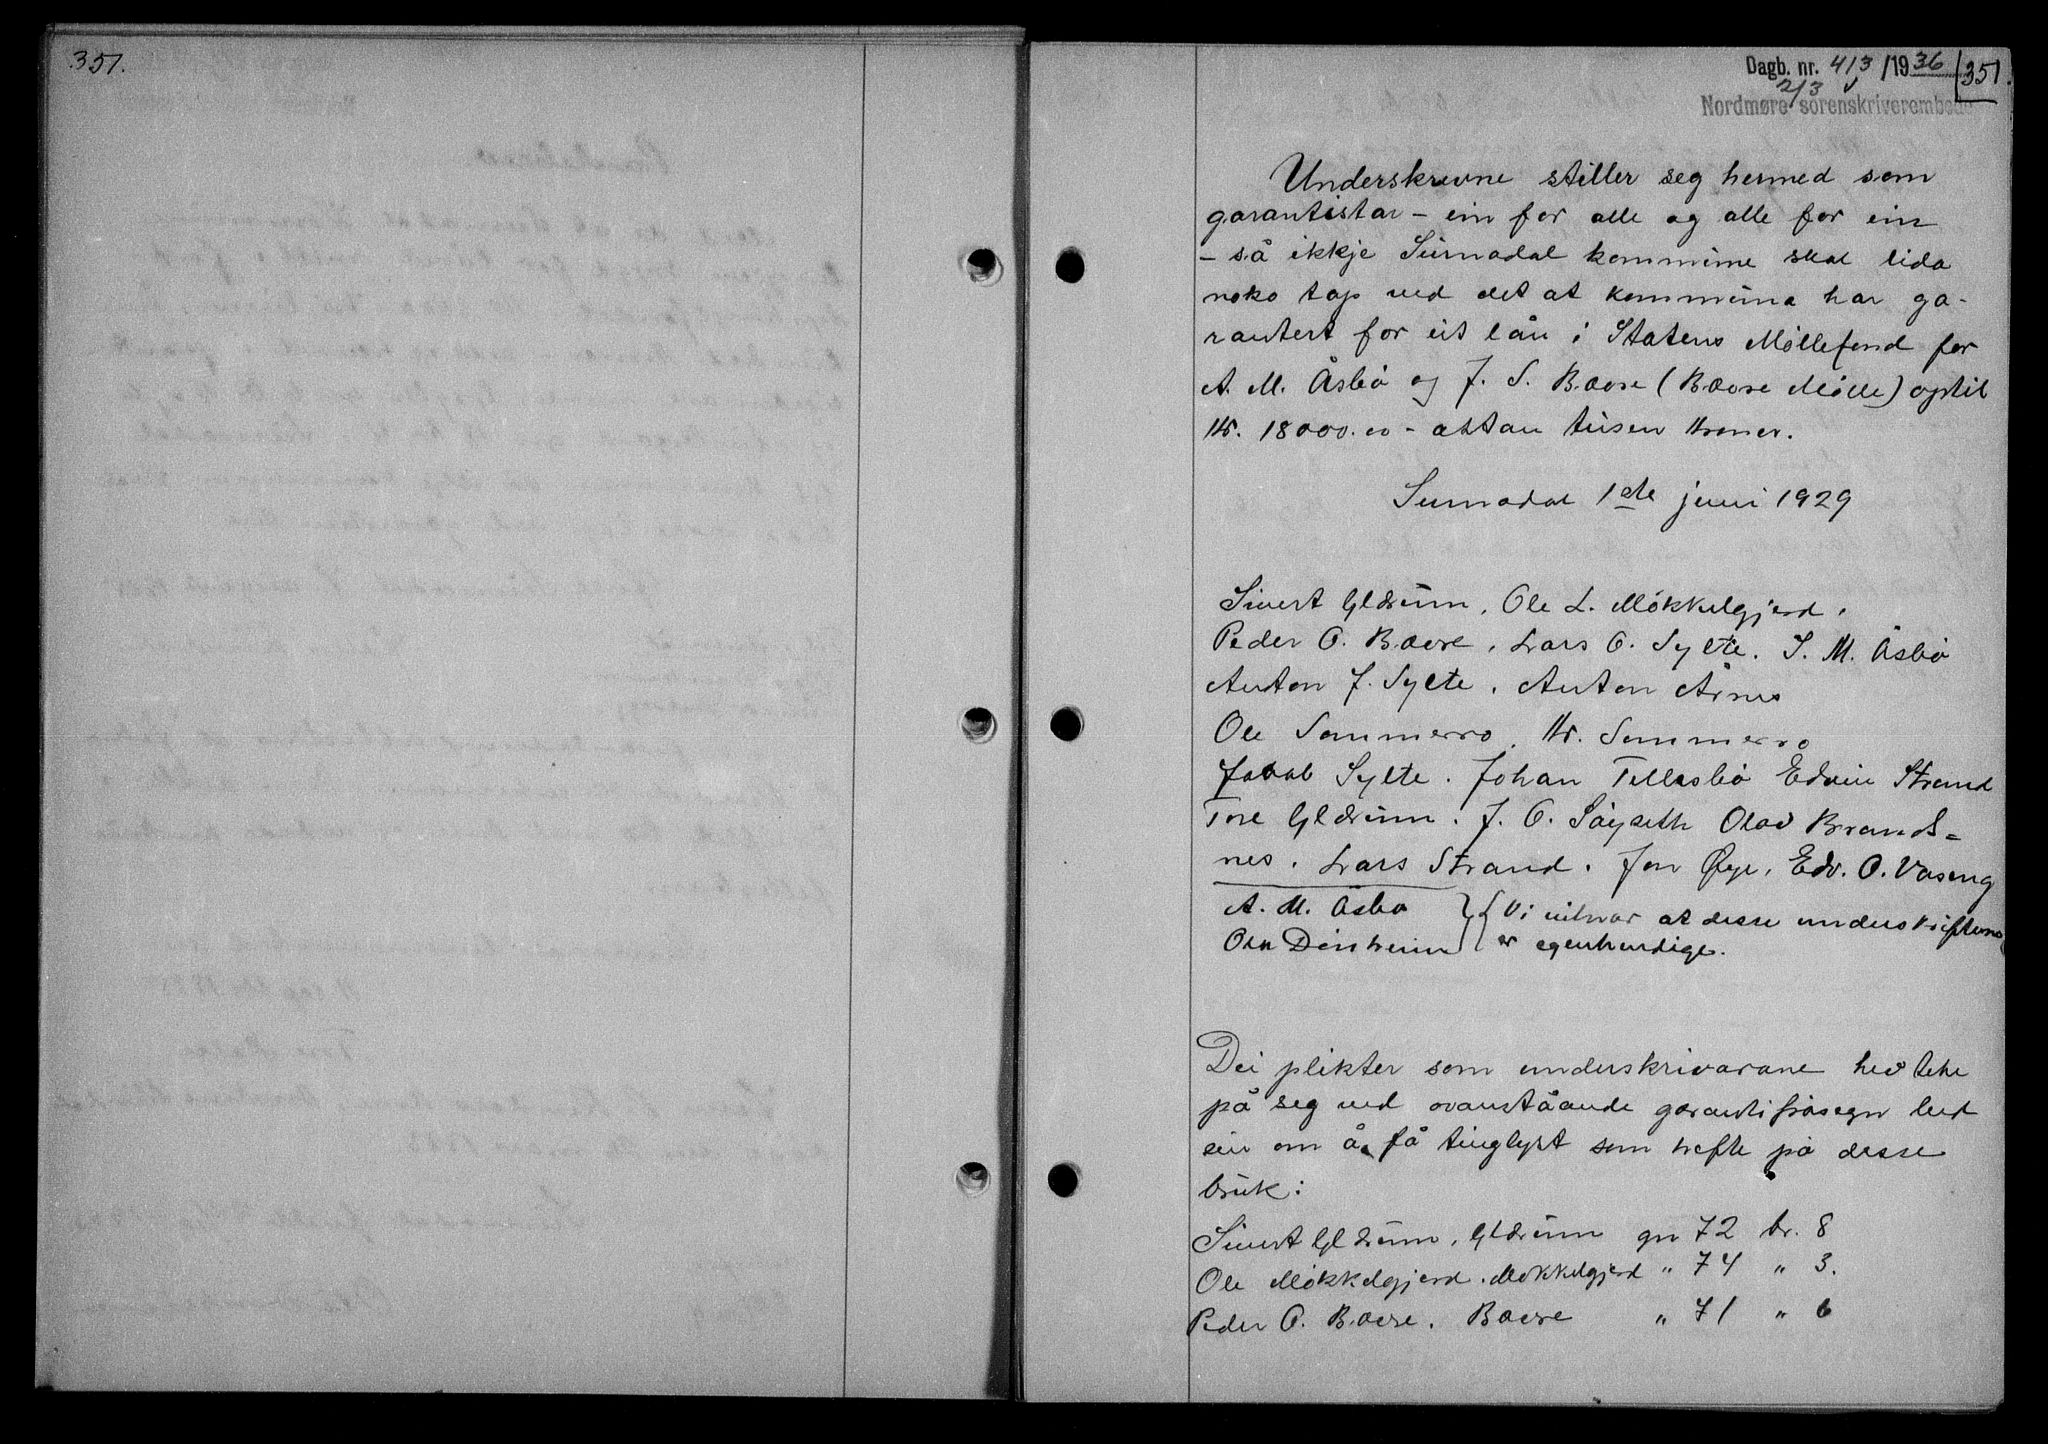 351.
Dagb. nr. 413/1936 351.
2/3
Nordmøre sorenskriverembede
Underskrevne stiller seg hermed som
garantistar - ein for alle og alle for ein
- så ikkje Surnadal kommune skal lida
noko tap ved det at kommuna har ga-
rantert for eit lån i Statens Møllefond for
A. M. Åsbø og J. S. Bæure (Bæure Mølle) optil
kr. 18000.00 - attan tusen kroner.
Surnadal 1ste juni 1929
Sivert Glærum, Ole L. Møkkelgjerd.
Peder O. Bævre, Lars O. Sylte. S. M. Åsbø
Anton J. Sylte, Anton Årnes
Ole Sommerro, Kr. Sommerro
Jakob Sylte. Johan Tellesbø Edvin Strand
Tore Glærum. J. O. Sæyseth Olav Brands=
nes. Lars Strand. Jon Øye, Edv. O. Vaseng
A. M. Åsbø } { Vi vitnar at desse underskriftene
Ola Dønheim er egenhendige.
Dei plikter som underskrivarane hev teke
på seg ved ovanståande garantifråsegn bed
ein om å få tinglyst som hefte på desse
bruk:
Sivert Glærum, Glærum gn 72 br. 8
Ole Møkkelgjerd. Møkkelgjerd " 74 " 3.
Peder O. Bævre. Bævre " 71 " 6